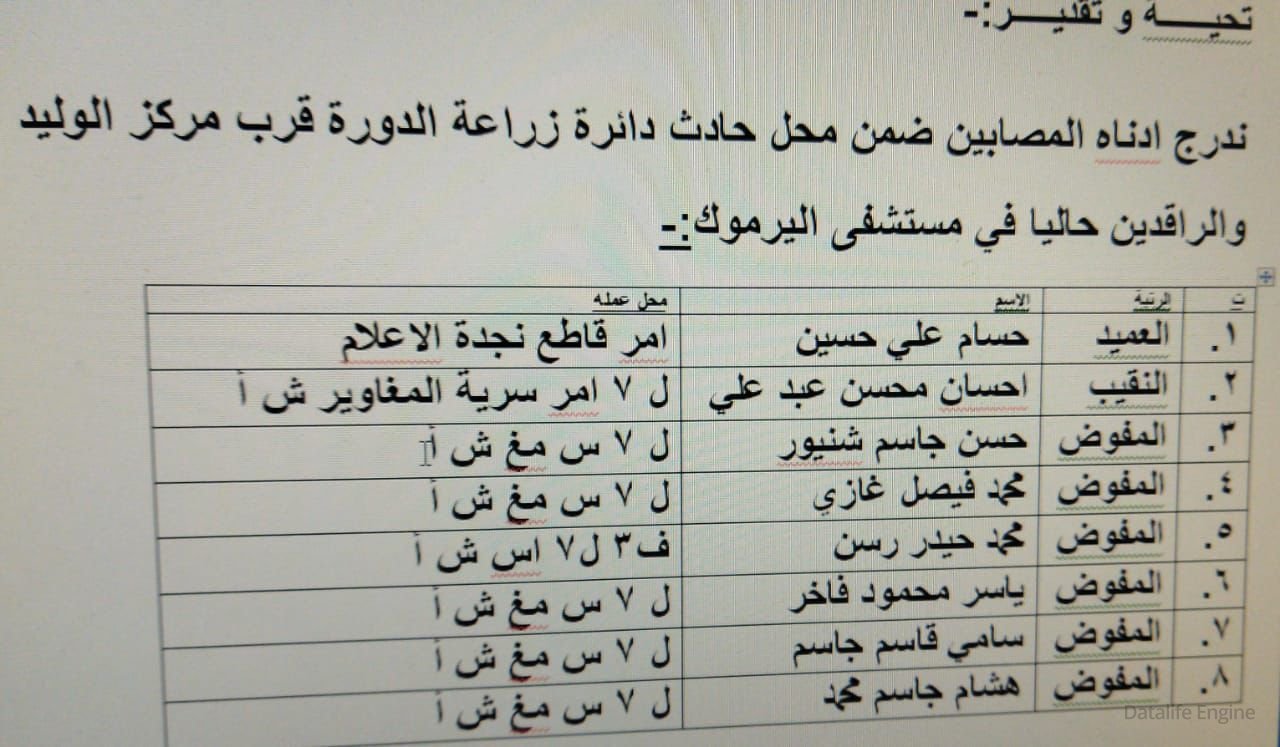 تحيـــــة و تقديـــــر:-
ندرج ادناه المصابين ضمن محل حادث دائرة زراعة الدورة قرب مركز الوليد
والراقدين حاليا في مستشفى اليرموك:-
ت الرتبة الاسم محل عمله
١. العميد حسام علي حسين امر قاطع نجدة الاعلام
٢. النقيب احسان محسن عبد علي ل ٧ امر سرية المغاوير ش أ
٣. المفوض حسن جاسم شنيور ل ٧ س مغ ش أ
٤. المفوض محمد فيصل غازي ل ٧ س مغ ش أ
٥. المفوض محمد حيدر رسن ف٣ ل٧ اس ش أ
٦. المفوض ياسر محمود فاخر ل ٧ س مغ ش أ
٧. المفوض سامي قاسم جاسم ل ٧ س مغ ش أ
٨. المفوض هشام جاسم محمد ل ٧ س مغ ش أ
Datalife Engine